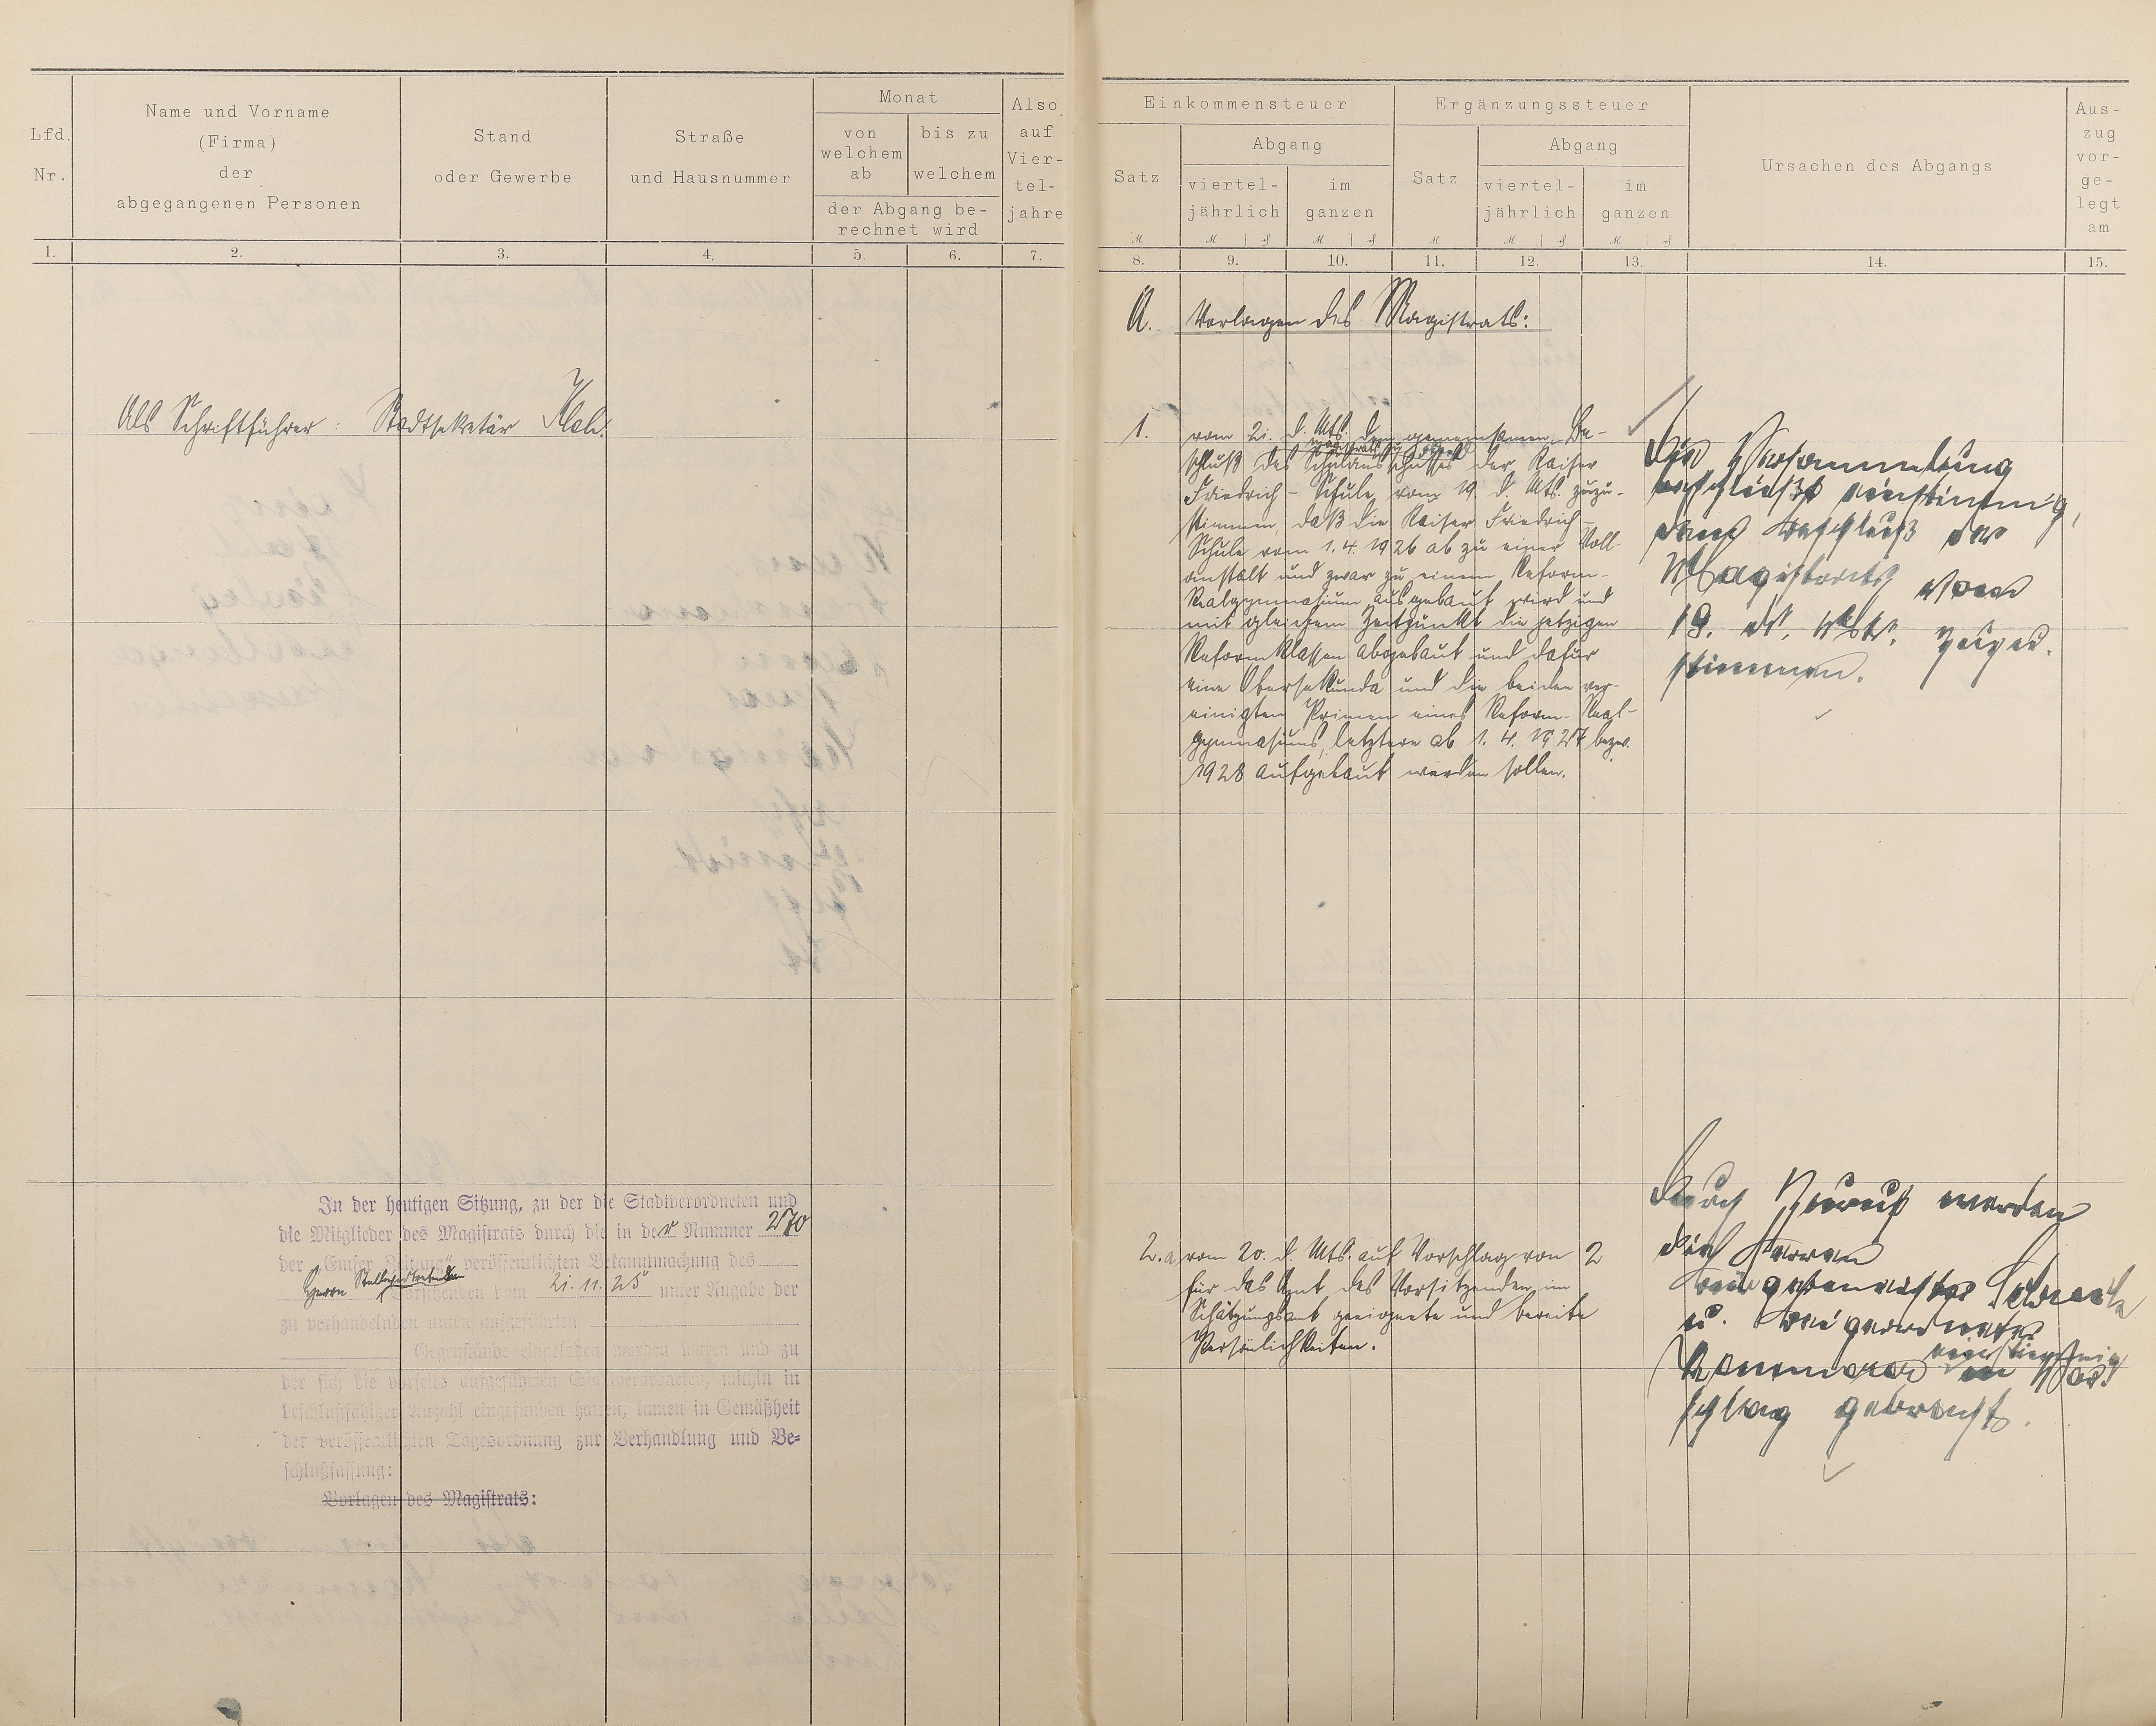 Lfd.
Nr.
Name und Vorname
(Firma)
der
abgegangenen Personen
Stand
oder Gewerbe
Straße
und Hausnummer
Monat
von
welchem
ab
bis zu
welchem
der Abgang be-
rechnet wird
Also
auf
Vier-
tel-
jahre
1. 2. 3. 4. 5. 6. 7.
Als Schriftführer: Stadtsekretär
In der heutigen Sitzung, zu der die Stadtverordneten und
die Mitglieder des Magistrats durch die in der Nummer 270
der „Emser Zeitung“ veröffentlichten Bekanntmachung des
Herrn Stellvertretenden
Vorsitzenden vom 21.11.25 unter Angabe der
zu verhandelnden unten aufgeführten
Gegenstände eingeladen worden waren und zu
der sich die vorseits aufgeführten Stadtverordneten, mithin in
beschlußfähiger Anzahl eingefunden hatten, kamen in Gemäßheit
der veröffentlichten Tagesordnung zur Verhandlung und Be-
schlußfassung:
Vorlagen des Magistrats:
Einkommensteuer
Satz
Abgang
viertel-
jährlich
im
ganzen
Ergänzungssteuer
Satz
Abgang
viertel-
jährlich
im
ganzen
Ursachen des Abgangs
Aus-
zug
vor-
ge-
legt
am
M M ₰ M ₰ M M ₰ M ₰
8. 9. 10. 11. 12. 13. 14. 15.
A. Vorlagen des Magistrats:
1. vom 21. d. Mts. dem gemeinsamen Be-
schluß des Schulausschusses der Kaiser
Friedrich-Schule vom 19. d. Mts. zuzu-
stimmen, daß die Kaiser Friedrich-
Schule vom 1.4.1926 ab zu einer Voll-
anstalt und zwar zu einem Reform-
Realgymnasium ausgebaut wird und
mit gleichem Zeitpunkt die jetzigen
Reformklassen abgebaut und dafür
eine Obersekunda und die beiden ver-
einigten Primen eines Reform-Real-
gymnasiums, letztere ab 1.4.1927 bezw.
1928 aufgebaut werden sollen.
Die Versammlung
beschließt einstimmig,
dem Beschluß des
Magistrats vom
19. d. Mts. zuzu-
stimmen.
2.a vom 20. d. Mts. auf Vorschlag von 2
für das Amt des Vorsitzenden im
Schätzungsamt geeignete und bereite
Persönlichkeiten.
Durch Zuruf werden
die Herren
Bürgermeister
u. Beigeordneter
einstimmig
in Vor-
schlag gebracht.